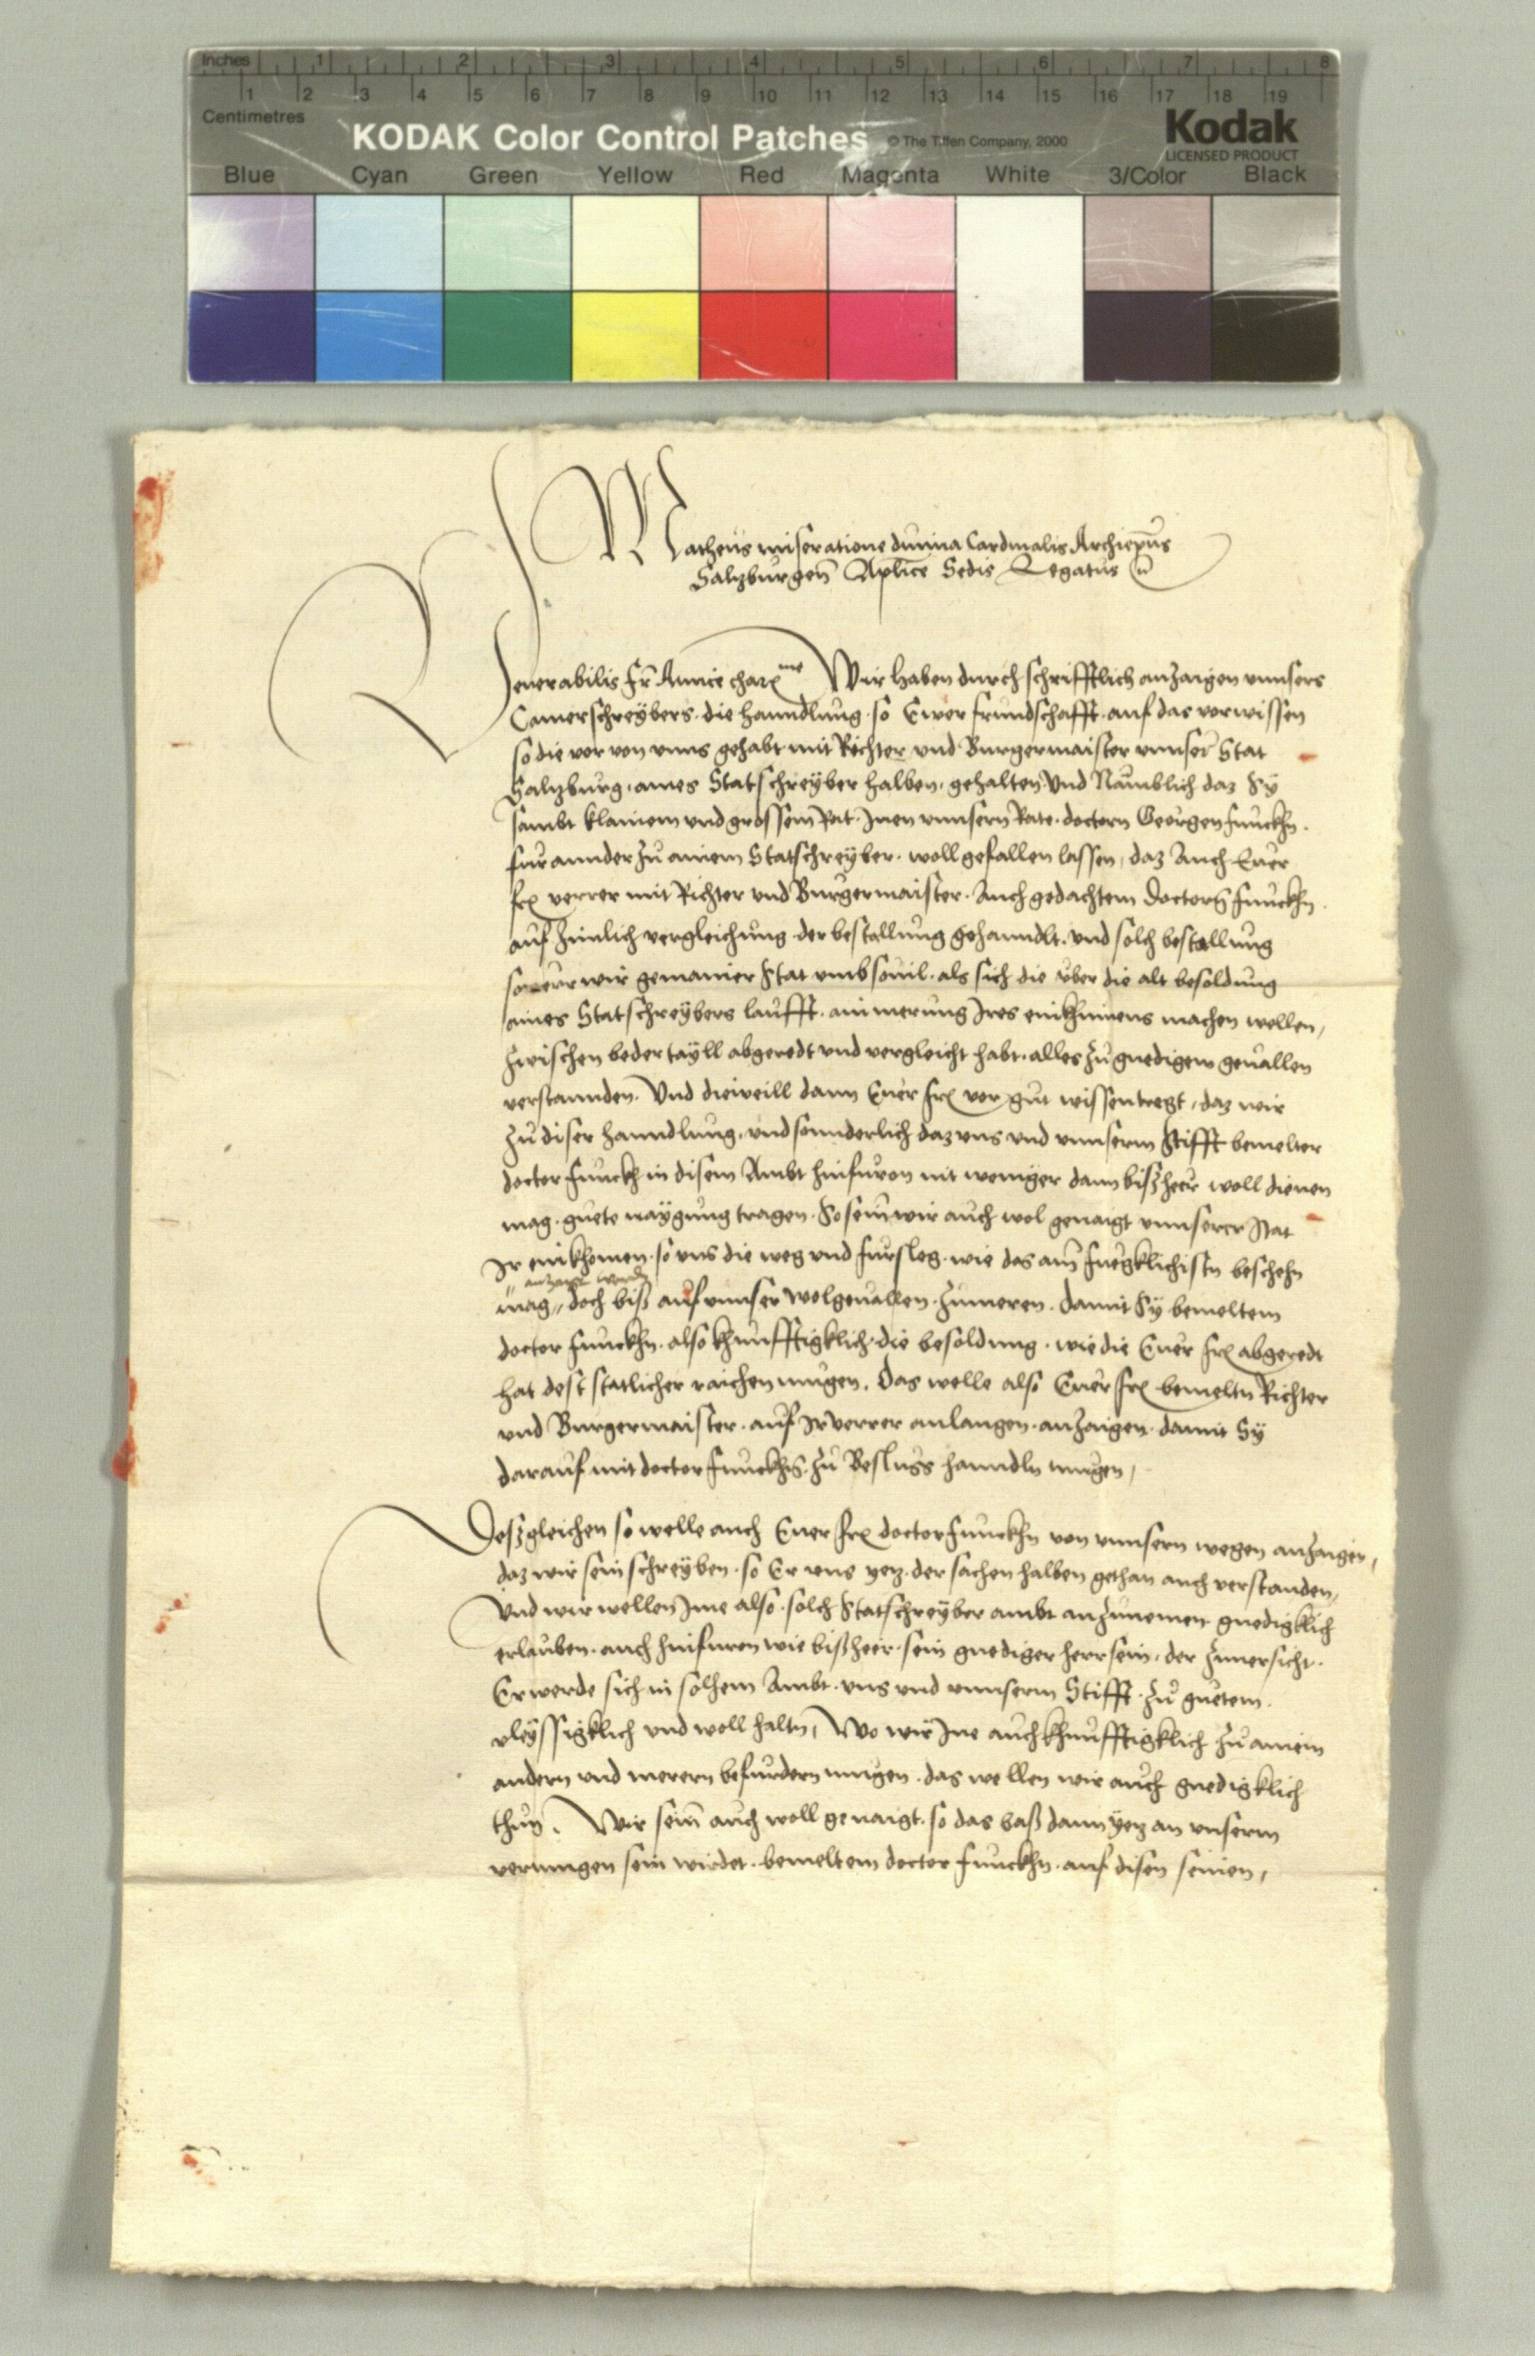 Inches 1 2 3 4 5 6 7 8
1 2 3 4 5 6 7 8 9 10 11 12 13 14 15 16 17 18 19
Centimetres
KODAK Color Control Patches © The Tiffen Company, 2000 Kodak
LICENSED PRODUCT
Blue Cyan Green Yellow Red Magenta White 3/Color Black
Matheus miseratione divina Cardinalis Archiepus
Salzburgen Aplice Sedis Legatus
Venerabilis fr Amice Wir haben durch schrifftlich anzaigen vnnsers
Camerschreÿbers. die hanndlung. so Ewer frundschafft. auf das vorwissen
so die vor von vnns gehabt mit Richter vnd Burgermaister vnnser Stat
Salzburg. aines Statschreÿber halben. gehalten. Vnd Namblich daz Sÿ
sambt klainem vnd grossem Rat. Inen vnnsern Rate. doctorn Georgen funckhn.
fur annder zu ainem Statschreÿber. woll gefallen lassen, daz Auch Euer
verrer mit Richter vnd Burgermaister. Auch gedachtem Doctorn funckhn.
auf zimlich vergleichung der bestallung gehanndlt. vnd solch bestallung
wir gemainer Stat vmb souil. als sich die vber die alt besoldung
aines Statschreÿbers laufft. ain merung Ires einkhumens machen wellen,
zwischen beder taÿll abgeredt vnd vergleicht habt. alles zu gnedigem geuallen
verstannden. Vnd dieweill dann Euer vor gut wissen tregt, daz wir
zu diser hanndlung. vnd sonnderlich daz vns vnd vnnserm Stifft bemelter
doctor funckh in disem Ambt hinfuron nit weniger dann bißheer woll dienen
mag. guete naÿgung tragen. So sein wir auch wol genaigt vnnserer Stat
Ir einkhomen. so vns die weg vnd furschleg. wie das am fueglichistn beschehn
anzaigt werdn
mag, doch biß auf vnnser wolgeuallen. zumeren. damit Sÿ bemeltem
doctor funckhn. also khunfftigklich. die besoldung. wie die Euer abgeredt
hat dest statlicher raichen mugen. Das welle also Euer bemeltn Richter
vnd Burgermaister. auf Ir verrer anlangen. anzaigen. damit Sy
darauf mit doctor funckhn. zu Besluss hanndln mugen,
Deßgleichen so welle auch Euer doctor funckhn von vnnsern wegen anzaigen,
daz wir sein schreÿben. so Er vns yetz. der sachen halben gethan auch verstanden,
Vnd wir wellen Ime also. solch Statschreÿber ambt anzunemen gnedigklich
erlauben. auch hinfuron wie bißheer. sein gnediger herr sein. der zuuersicht.
Er werde sich in solhem Ambt. vns vnd vnnserm Stifft. zu guetem.
vleÿssigklich vnd woll haltn, Wo wir Ine auch khunfftigklich zu ainem
andern vnd merern befurdern mugen. das wellen wir auch gnedigklich
thun. Wir sein auch woll genaigt. so das baß dann ÿetz an vnserm
vermugen sein wirdet. bemeltem doctor funckhn. auf disen seinen,